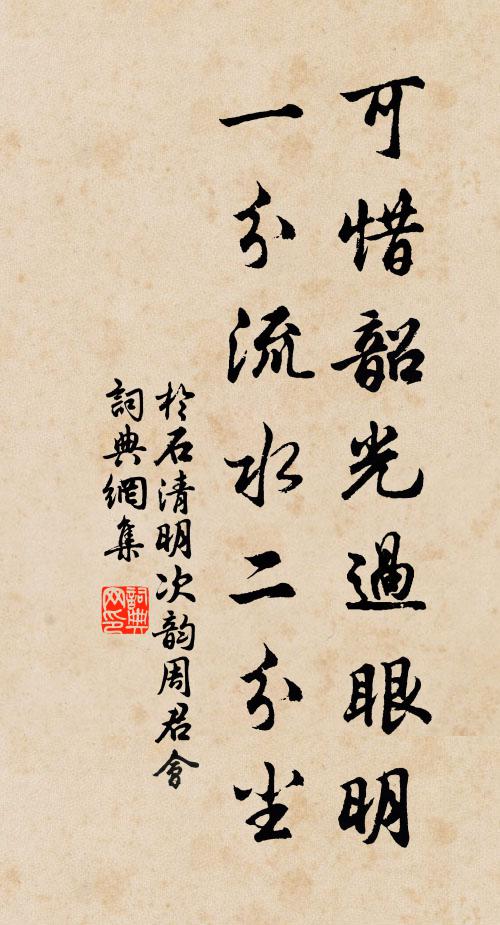 可惜韶光過眼明
一分流水二分尘
於石清明次韵周君會
詞典網集
詞典
网印